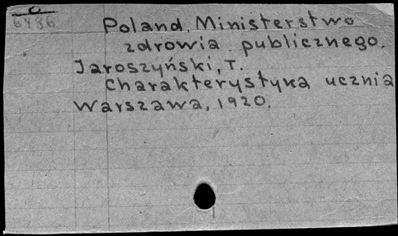 6486
Poland. Ministerstwo
zdrowia publicznego.
Jaroszyński, T.
Charakterystyka ucznia
Warszawa, 1920.